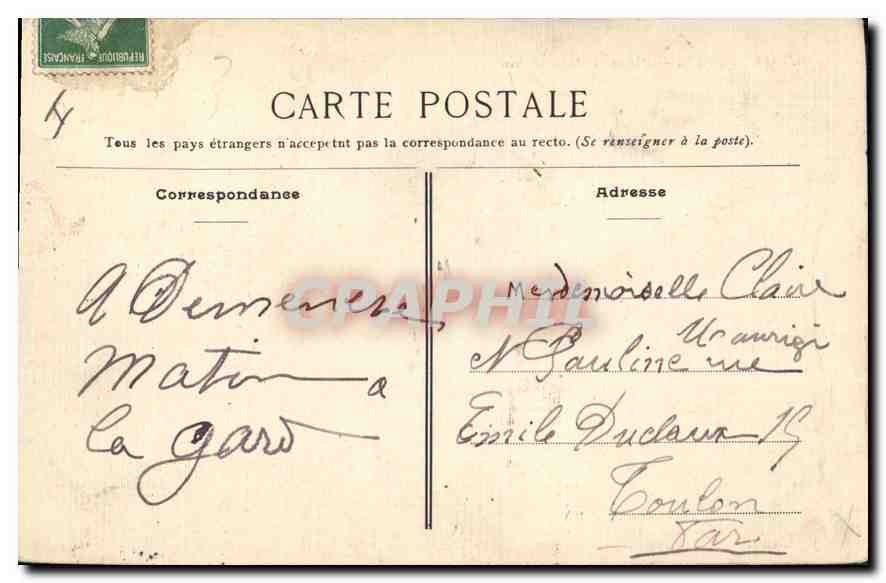 RÉPUBLIQUE FRANÇAISE
CARTE POSTALE
Tous les pays étrangers n'accepetnt pas la correspondance au recto. (Se renseigner à la poste).
Correspondance
A Demenere
Matin a
la gard
CPAPHIL
Adresse
Mademoiselle Claire
Maurigi
N Pauline rue
Emile Duclaux 15
Toulon
Var